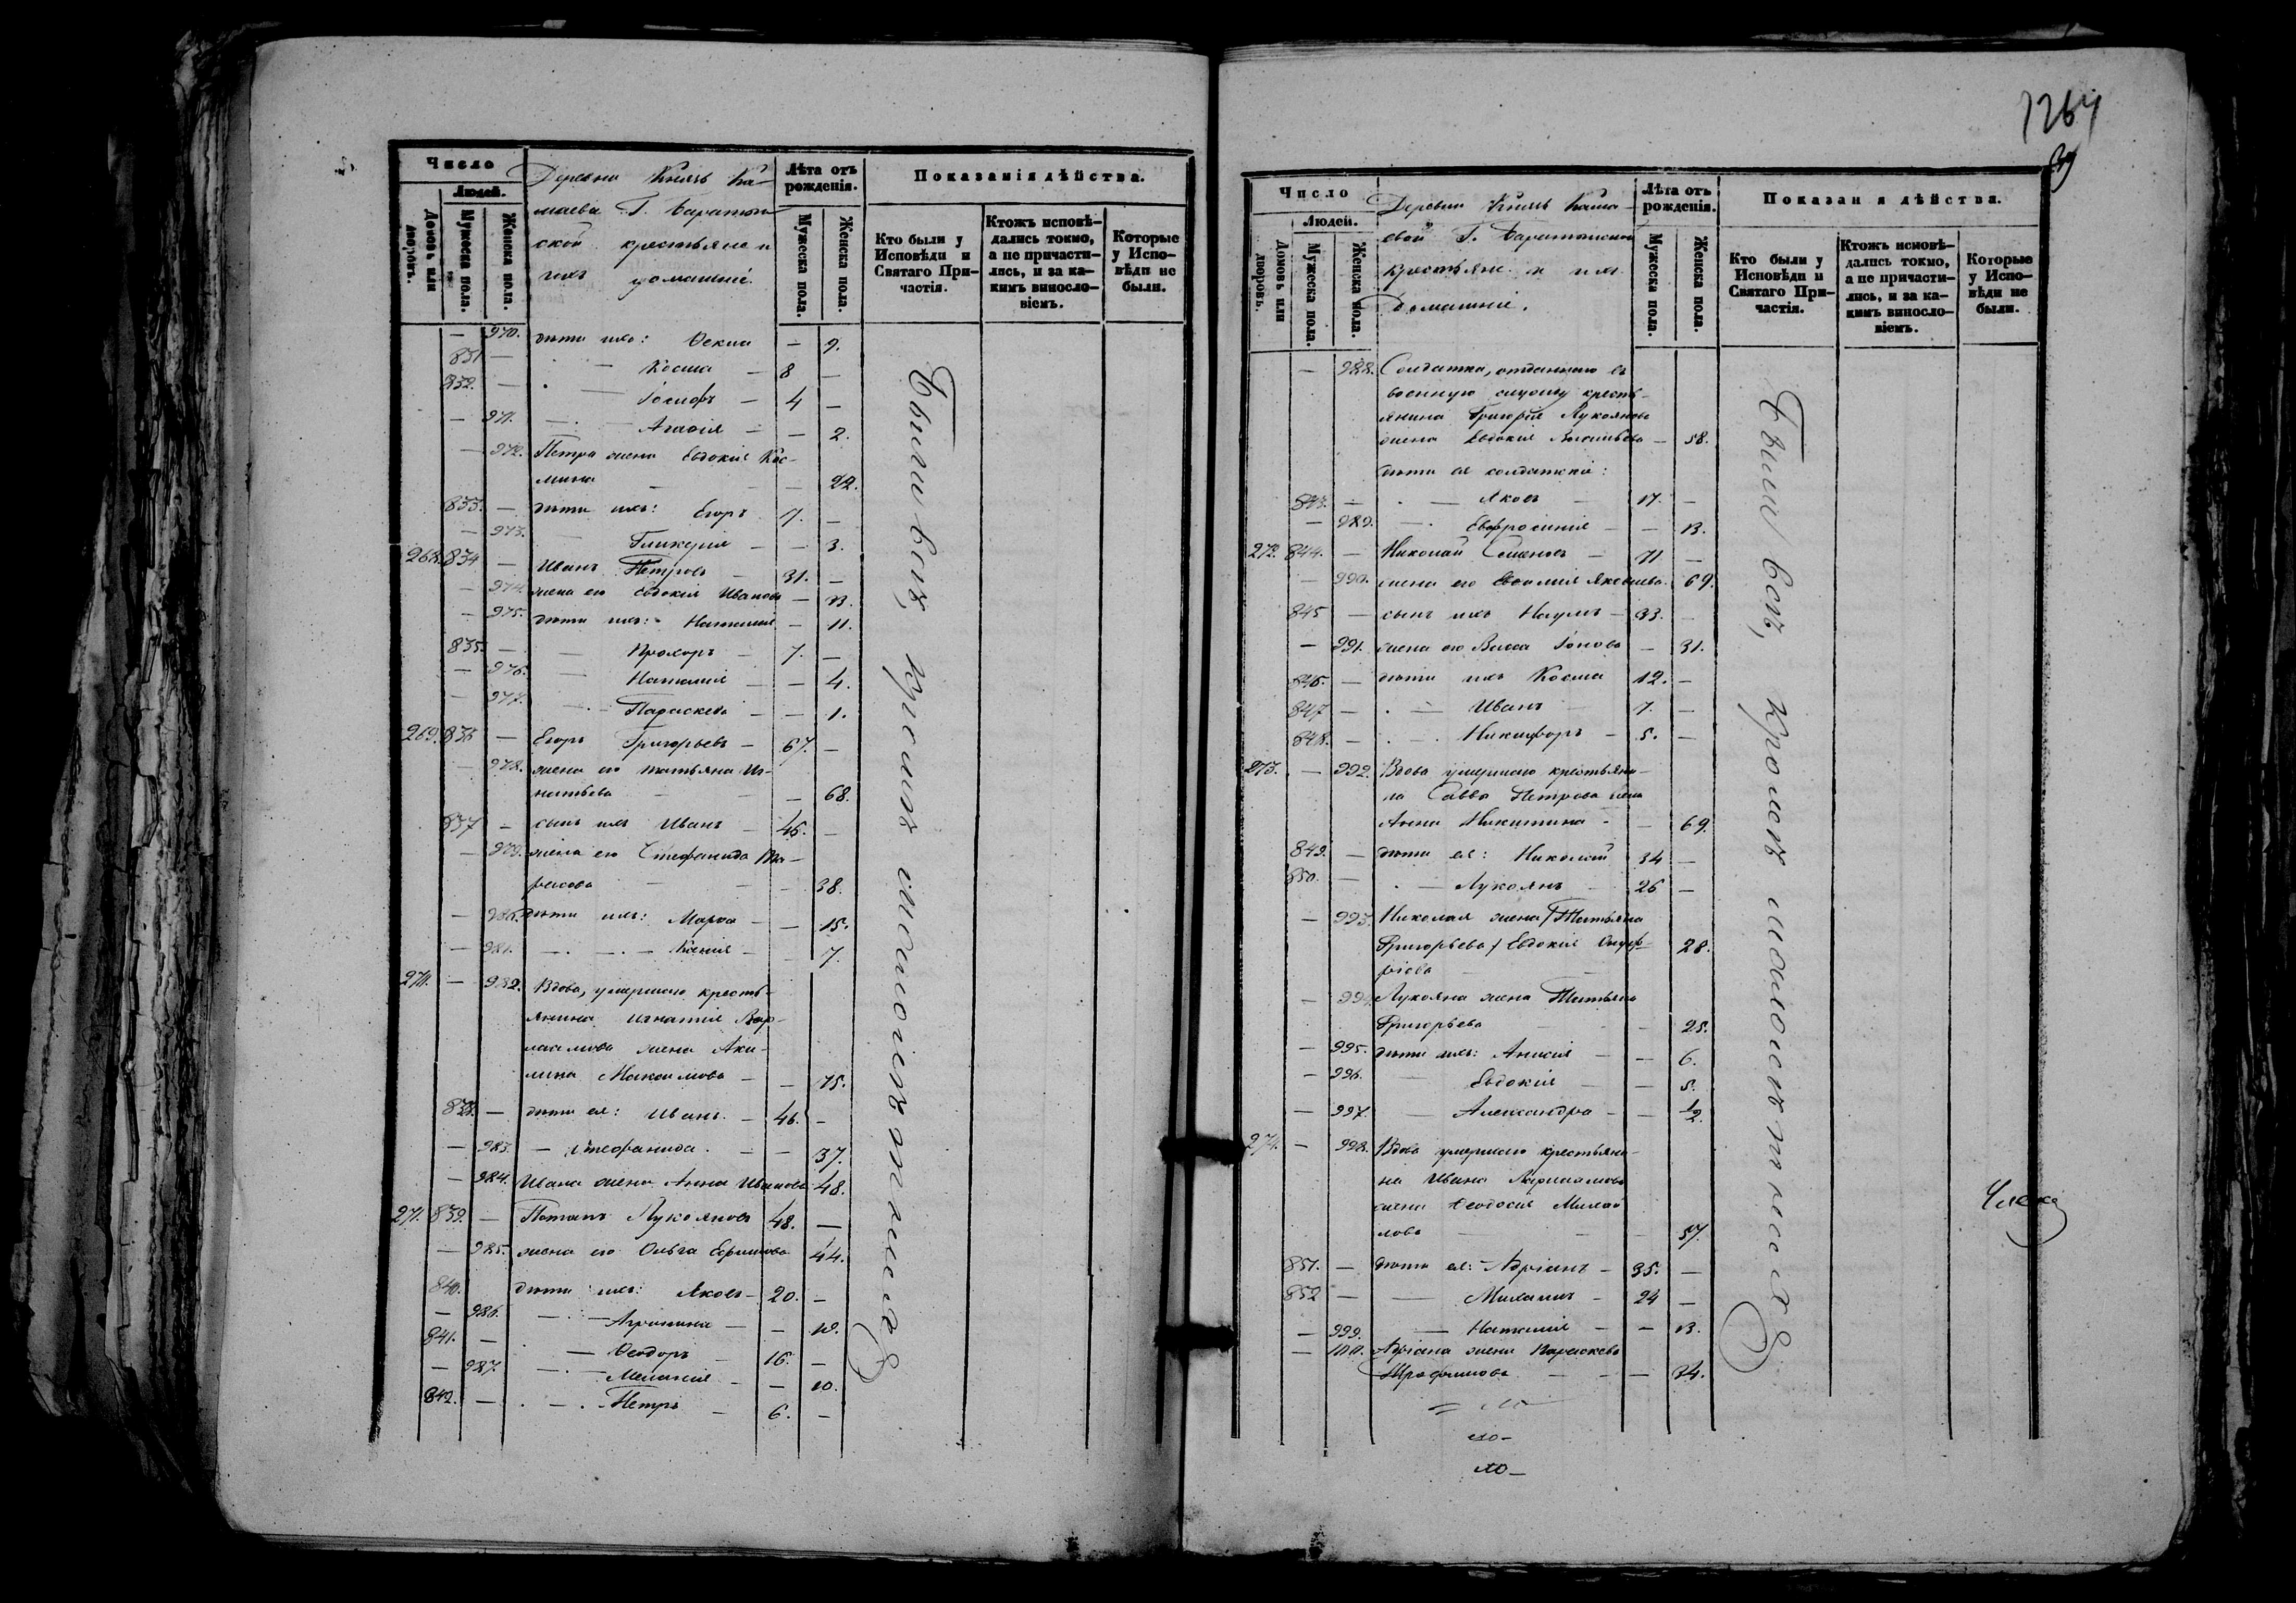 1264
39
Число
Людей.
Домовъ или дворовъ.
Мужеска пола.
Женска пола.
Деревни Князь Ка-
маева Г. Баратын-
ской крестьяне и
ихъ домашніе.
Лѣта отъ рожденія.
Мужеска пола.
Женска пола.
Показанія дѣйства.
Кто были у Исповѣди и Святаго При-частія.
Ктожъ исповѣ-дались токмо, а не причасти-лись, и за ка-кимъ винословіемъ.
Которые у Испо-вѣди не были.
— 970. дѣти ихъ: Ѳекла — 9.
831 — — Косма — 8 —
832. — — Іосифъ — 4 —
— 971. — Агаѳія — — 2.
— 972. Петра жена Евдокія Кос-
мина — — 22.
833. — дѣти ихъ: Егоръ 7. —
— 973. Гликерія — — 3.
268. 834 — Иванъ Петровъ — 31. —
— 974. жена его Евдокія Иванова — 33.
— 975. дѣти ихъ: Наталія — 11.
835. — — Прохоръ — 7. —
— 976. — Наталія — — 4.
— 977. — Параскева — — 1.
269. 836 — Егоръ Григорьевъ — 67. —
— 978. жена его Татьяна Иг-
натьева — — 68.
837 — сынъ ихъ Иванъ — 46. —
— 979. жена его Стефанида
— — 38.
— 980. дѣти ихъ: Марѳа — — 15.
— 981. — Ксенія — — 7.
270. — 982. Вдова, умершаго кресть-
янина Игнатія Вар-
лаамова жена Аки-
лина Максимова — — 75.
838. — дѣти ея: Иванъ. — 46. —
— 983. — Стефанида. — — 37.
— 984. Ивана жена Анна Иванова — 48.
271. 839. — Потапъ Лукояновъ 48. —
— 985. жена его Ольга Ефимова 44.
840. дѣти ихъ: Яковъ — 20. —
— 986. — Агрипина — — 18.
841. — — Ѳеодоръ — 16. —
— 987. — Меланія — — 10.
842. — — Петръ — 6. —
Были всѣ, кромѣ малолѣтнихъ
Число
Людей.
Домовъ или дворовъ.
Мужеска пола.
Женска пола.
Деревни Князь Кама-
евой Г. Баратынской
крестьяне и ихъ
домашніе.
Лѣта отъ рожденія.
Мужеска пола.
Женска пола.
Показанія дѣйства.
Кто были у Исповѣди и Святаго При-частія.
Ктожъ исповѣ-дались токмо, а не причасти-лись, и за ка-кимъ винословіемъ.
Которые у Испо-вѣди не были.
— 988. Солдатка, отданнаго въ
военную службу кресть-
янина Григорія Лукоянова
жена Евдокія — 58.
дѣти ея солдатскія:
843. — — Яковъ — 17. —
— 989. — Евфросинія — — 13.
272. 844. — Николай Семеновъ — 71 —
— 990. жена его Евѳимія Яковлева. 69.
845 — сынъ ихъ Наумъ — 33. —
— 991. жена его Васса Іонова — 31.
846. — дѣти ихъ Косма 12. —
847 — — Иванъ 7. —
848. — — Никифоръ — 5. —
273. — 992. Вдова умершаго крестьяни-
на Саввы Петрова жена
Анна Никитина — — 69.
849. — дѣти ея: Николай 34 —
850. — — Лукоянъ 26 —
— 993. Николая жена /Татьяна
Григорьева/ Евдокія Онуф-
ріева 28.
— 994. Лукояна жена Татьяна
Григорьева — — 25.
— 995. дѣти ихъ: Анисія — — 6.
— 996. — Евдокія — — 5.
— 997. — Александра — — 1/2
274. — 998. Вдова умершаго крестьяни-
на Ивана Варлаамова
жена Ѳеодосія Михай-
лова — — 57.
851. — дѣти ея: Адріанъ — 35. —
852 — — Михаилъ — 24 —
— 999. — Наталія — — 13.
— 1000. Адріана жена Параскева
Трофимова — — 34.
Были всѣ, кромѣ малолѣтнихъ